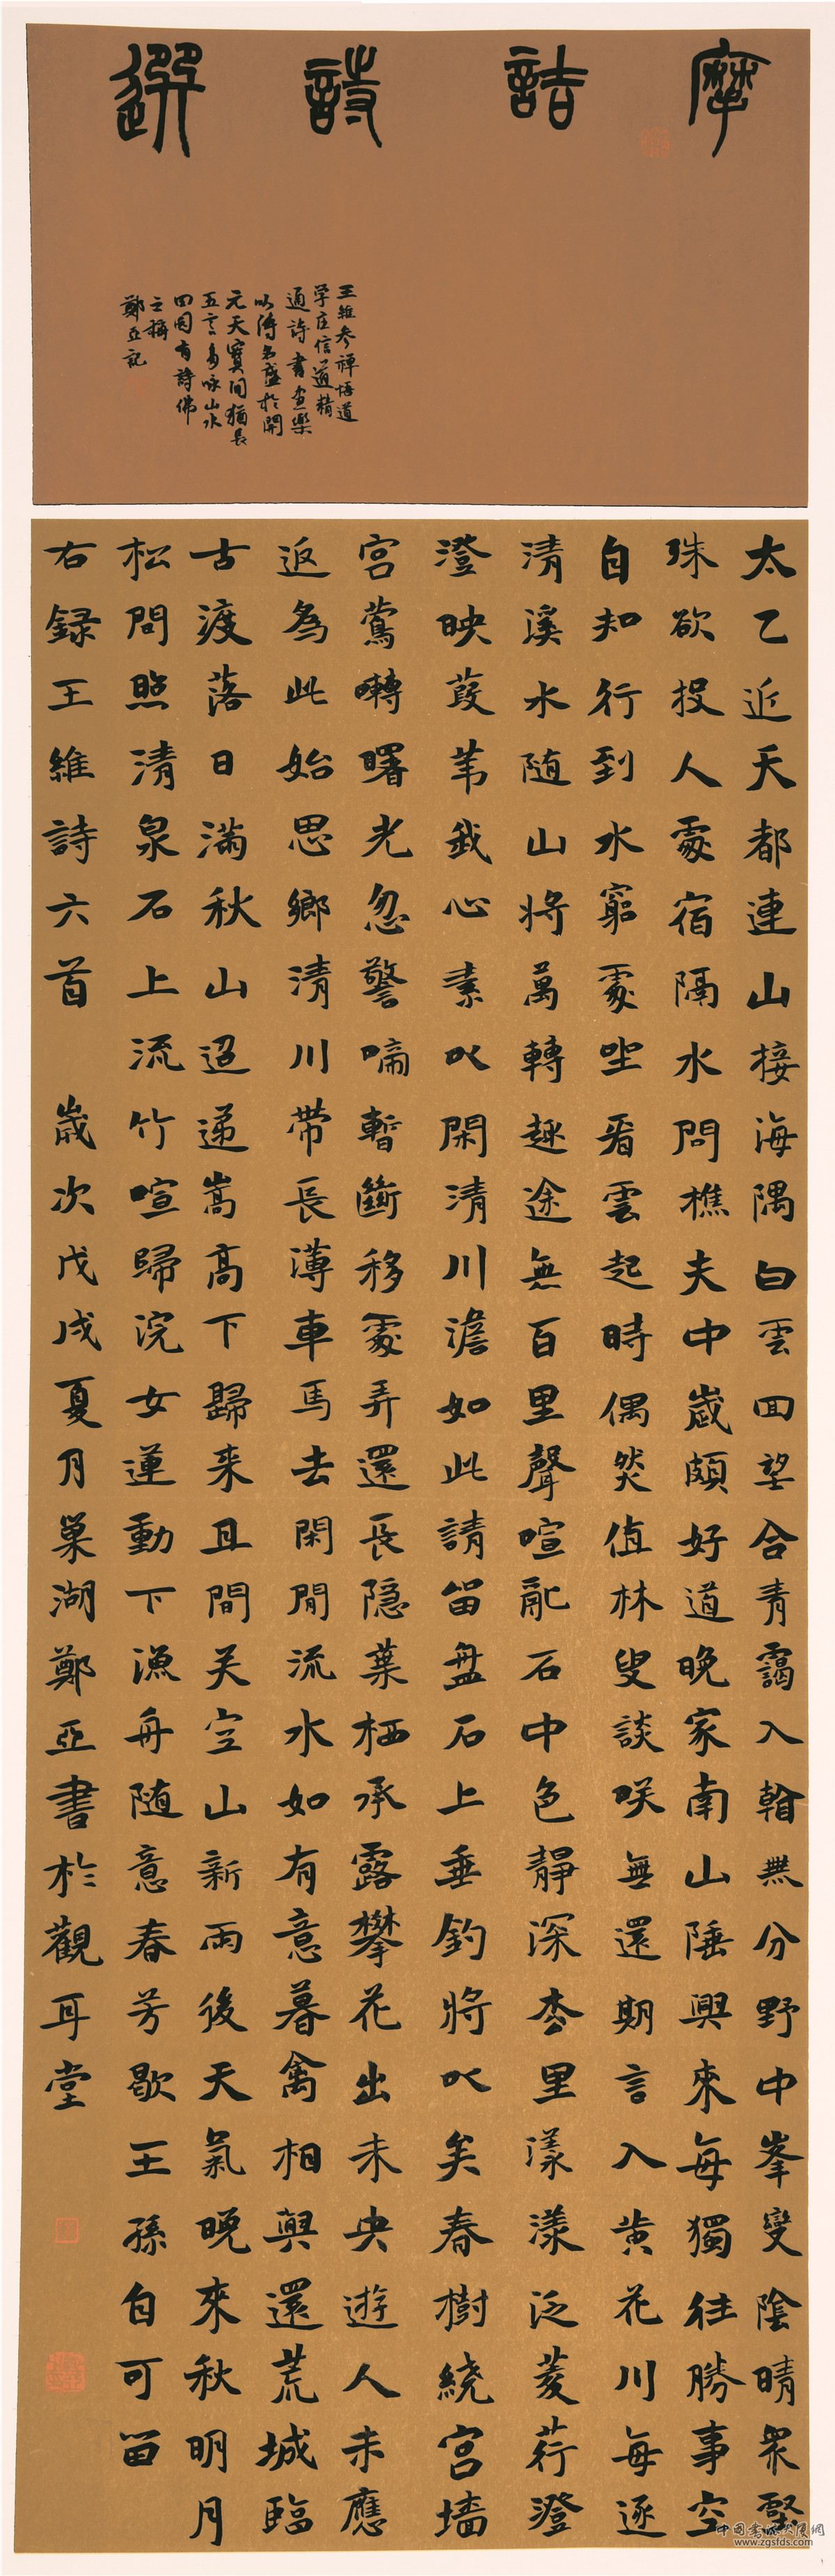 摩詰詩選
王維参禅悟道
学庄信道精
通詩書画樂
以诗名盛於開
元天寳间猶長
五言多咏山水
田园有詩佛
之稱
鄭亚記
太乙近天都連山接海隅白雲回望合青靄入看無分野中峯變陰晴衆壑
殊欲投人處宿隔水問樵夫中歲頗好道晚家南山陲興來每獨往勝事空
自知行到水窮處坐看雲起時偶然值林叟談咲無還期言入黄花川每逐
清溪水随山將萬轉趣途無百里聲喧亂石中色靜深松里漾漾泛菱荇澄
澄映葭苇我心素以閑清川澹如此請留盤石上垂釣將以矣春樹繞宫墻
宫鶯囀曙光忽警啼暫斷移處弄還長隐葉栖承露攀花出未央遊人未應
返為此始思鄉清川帶長薄車馬去閑閒流水如有意暮禽相與還荒城臨
古渡落日滿秋山迢递嵩高下歸来且閉关空山新雨後天氣晚來秋明月
松間照清泉石上流竹喧歸浣女蓮動下漁舟随意春芳歇王孫自可留
右録王維詩六首 歲次戊戌夏月巢湖鄭亞書於觀耳堂
www.zgsfds.com